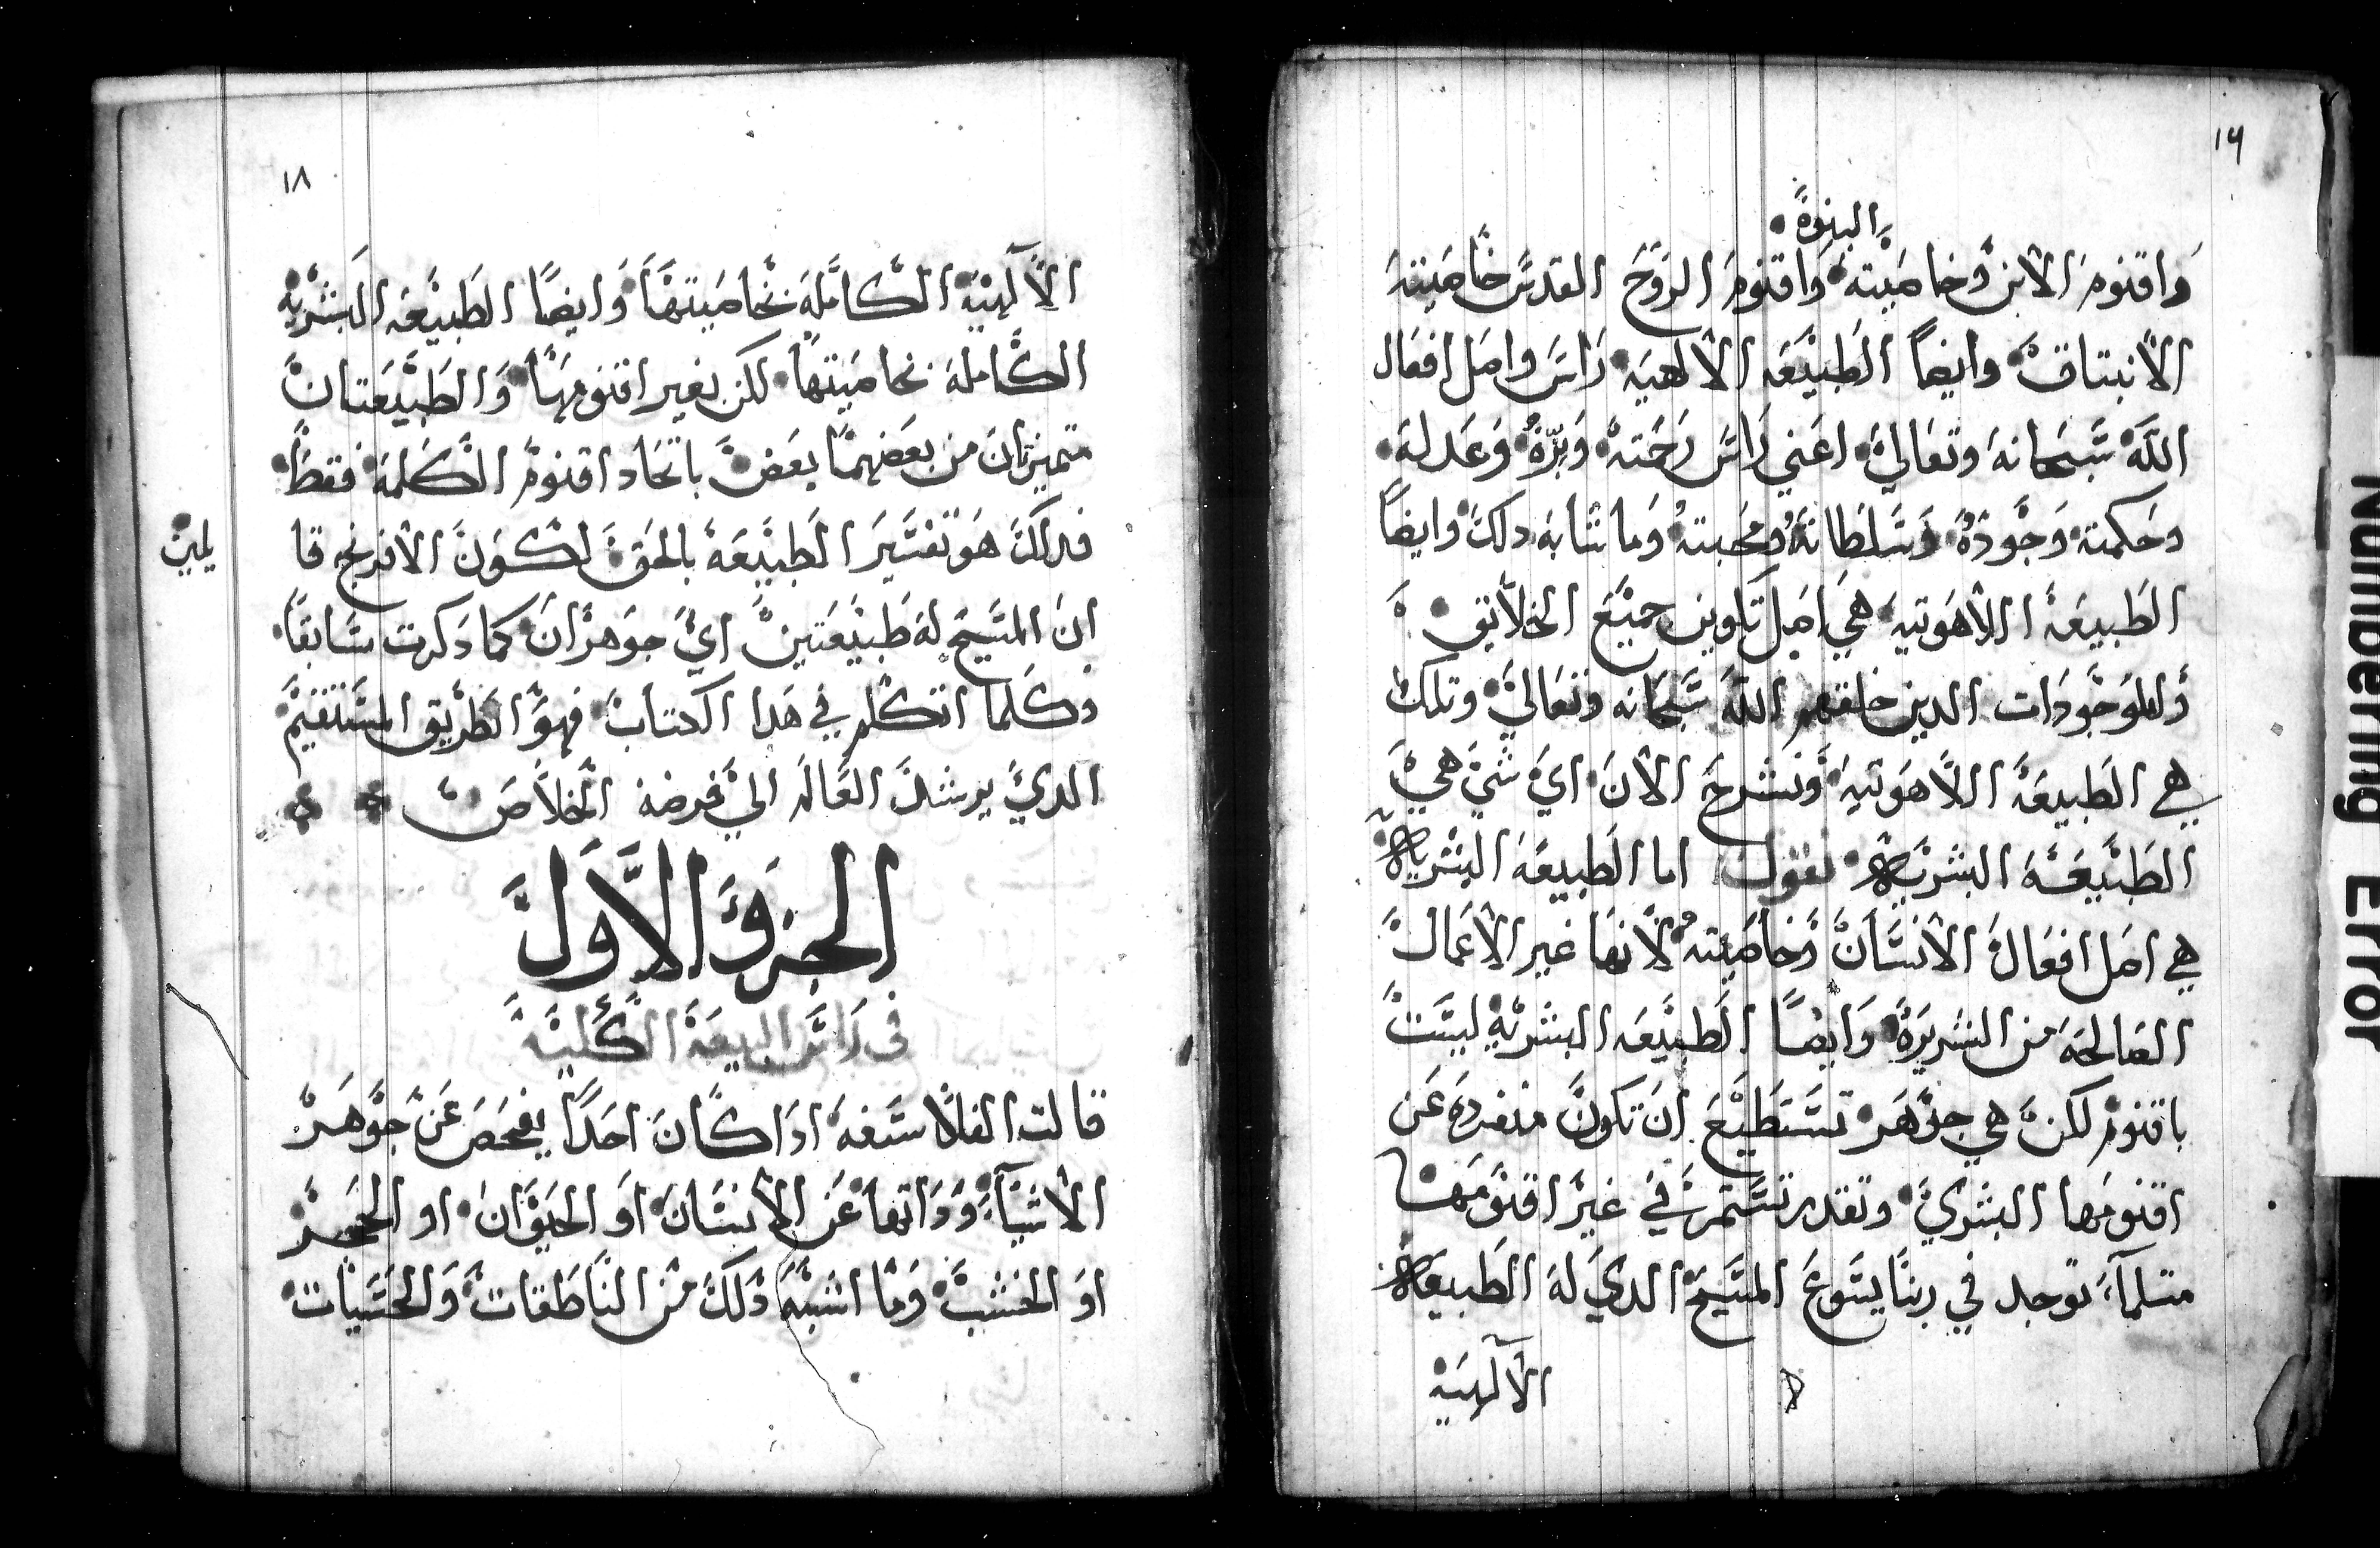 ١٦
البنوة
واقنوم الابن وخاصيته واقنوم الروح القدس خاصيته
الانبتاق وايضا الطبيعه الالهيه راس واصل افعال
الله سبحانه وتعالي اعني راس رحمته وبره وعدله
وحكمته وجوده وسلطانه ومحبته وما شابه دلك وايضا
الطبيعه اللاهوتيه هي اصل تكوين جميع الخلايق
والموجودات الدين خلقهم الله سبحانه وتعالي وتلك
هي الطبيعه اللاهوتيه ونشرح الان اي شي هي
الطبيعه البشريه نقول اما الطبيعه البشريه
هي اصل افعال الانسان وخاصيته لانها غير الاعمال
الصالحه من الشريره وايضا الطبيعه البشريه ليست
باقنوم لكن هي جوهر تستطيع ان تكون منفرده عن
اقنومها البشري وتقدر تستمر في غير اقنومها
متلما توجد في ربنا يسوع المسيح الدي له الطبيعه
الالهيه
١٨
الالهيه الكامله بخاصيتها وايضا الطبيعه البشريه
الكامله بخاصيتها لكن بغير اقنومها والطبيعتان
متميزتان من بعضهما بعض باتحاد اقنوم الكلمه فقط
فدلك هو تفسير الطبيعه بالحق لكون الافرنج قا
يلين
ان المسيح له طبيعتين اي جوهران كما دكرت سابقا
وكلما اتكلم في هدا الكتاب فهو الطريق المستقيم
الدي يرشد العالم الي فرضة الخلاص
الجزو الاول
في راس البيعه الكليه
قالت الفلاسفه ادا كان احدا يفحص عن جوهر
الاشياء وداتها عن الانسان او الحيوان او الحجر
او الخشب وما اشبه دلك من الناطقات والحسيات